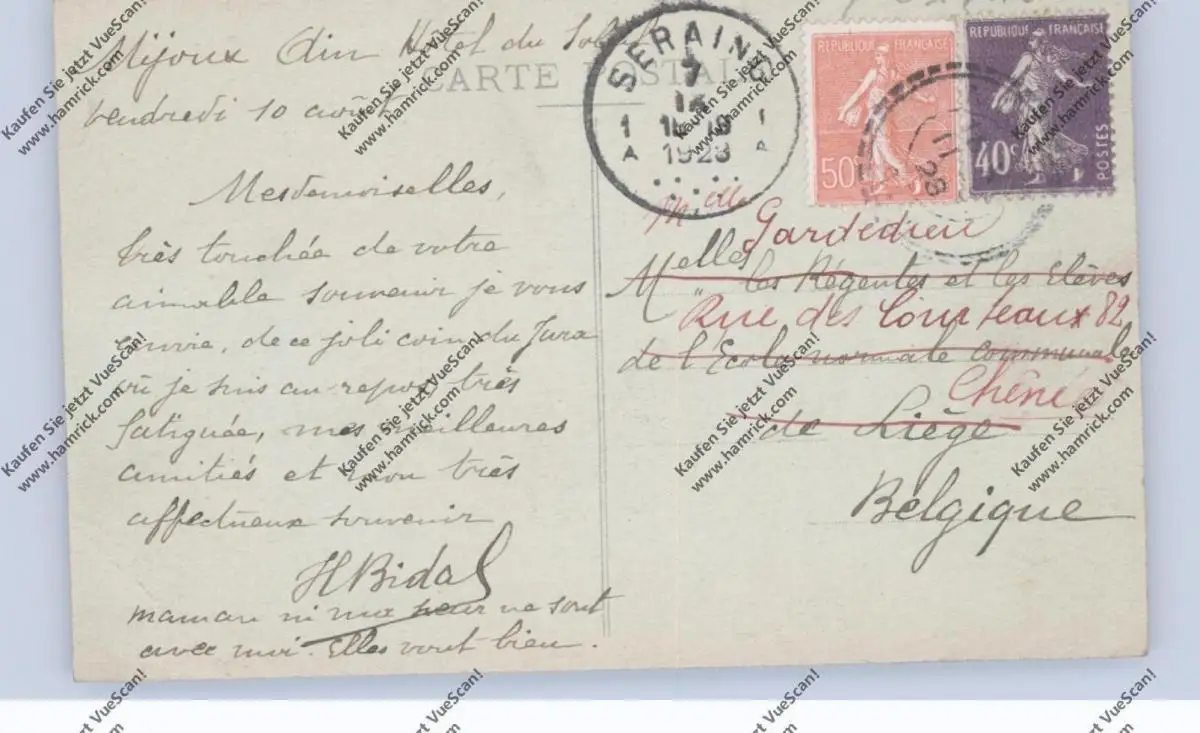 Mijoux Ain Hôtel du Soleil
vendredi 10 août
CARTE POSTALE
Mesdemoiselles,
très touchée de votre
aimable souvenir je vous
envie, de ce joli coin du Jura
où je suis au repos très
fatiguée, mes meilleures
amitiés et mon très
affectueux souvenir
H Bidal
maman ni ma sœur ne sont
avec moi. Elles vont bien.
SERAING
1 1
A A
1928
REPUBLIQUE FRANÇAISE
50c
REPUBLIQUE FRANÇAISE
40c
POSTES
11
28
Melle
Gardedieu
Melles les Régentes et les Elèves
Rue des Coupteaux 82
de l'Ecole normale communale
Chênée
de Liège
Belgique
Kaufen Sie jetzt VueScan!
www.hamrick.com
Kaufen Sie jetzt VueScan!
www.hamrick.com
Kaufen Sie jetzt VueScan!
www.hamrick.com
Kaufen Sie jetzt VueScan!
www.hamrick.com
Kaufen Sie jetzt VueScan!
www.hamrick.com
Kaufen Sie jetzt VueScan!
www.hamrick.com
Kaufen Sie jetzt VueScan!
www.hamrick.com
Kaufen Sie jetzt VueScan!
www.hamrick.com